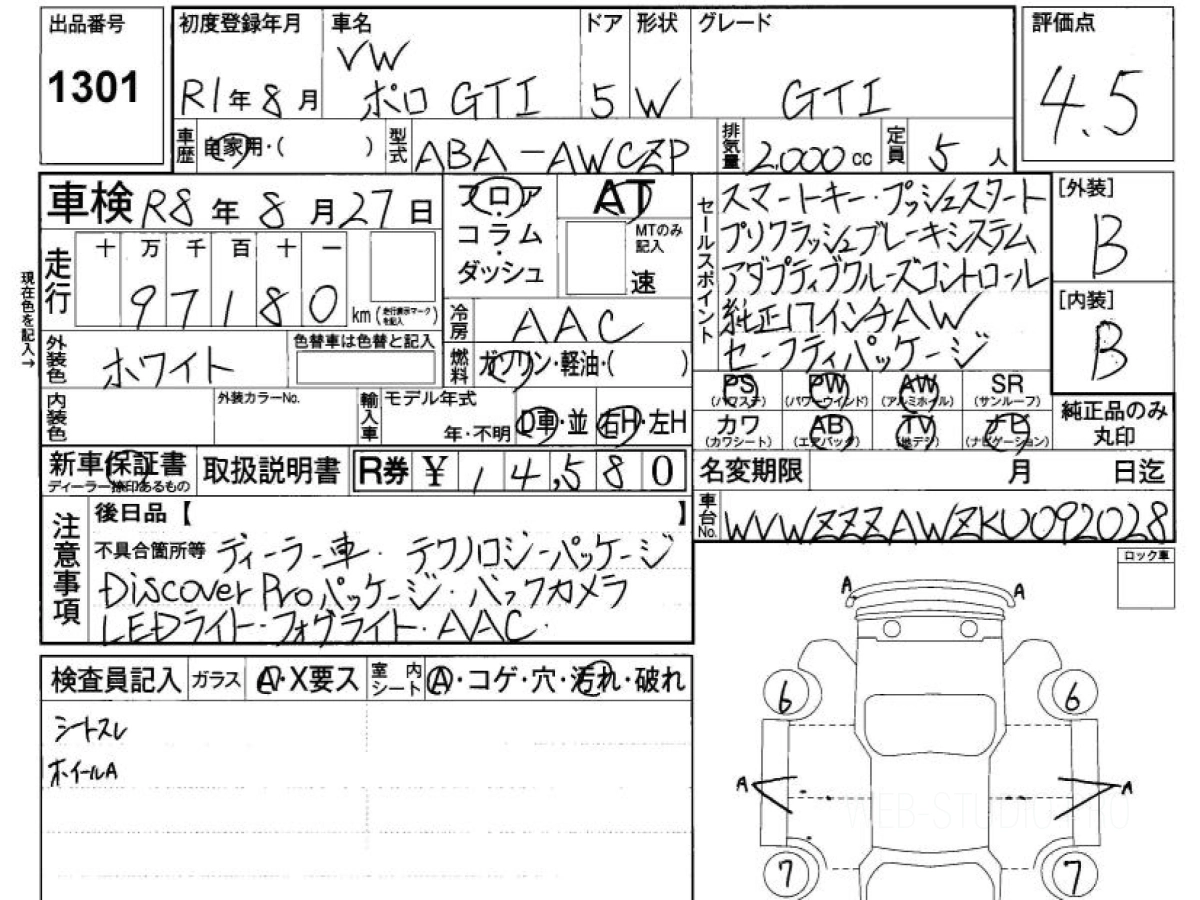 出品番号
1301
初度登録年月 車名 ドア 形状 グレード
R1年8月 VW
ポロ GTI 5 W GTI
評価点
4.5
車歴 自家用・( ) 型式 ABA-AWCZP 排気量 2,000cc 定員 5人
車検 R8年8月27日
フロア
コラム
ダッシュ
AT
MTのみ記入
速
セールスポイント
スマートキー・プッシュスタート
プリクラッシュブレーキシステム
アダプティブクルーズコントロール
純正17インチAW
セーフティパッケージ
[外装]
B
[内装]
B
現在色を記入→
走行 十 万 千 百 十 一
97180 km (走行表示マークを記入)
冷房 AAC
外装色 ホワイト 色替車は色替と記入
燃料 ガソリン・軽油・( )
内装色 外装カラーNo. 輸入車 モデル年式
年・不明 D車・並 右H・左H
PS (パワステ) PW (パワーウインド) AW (アルミホイル) SR (サンルーフ)
カワ (カワシート) AB (エアバッグ) TV (地デジ) ナビ (ナビゲーション)
純正品のみ
丸印
新車保証書 取扱説明書 R券 ¥14,580
ディーラー捺印あるもの
名変期限 月 日迄
車台No. WVWZZZAWZKU092028
注意事項
後日品【 】
不具合箇所等 ディーラー車・テクノロジーパッケージ
Discover Proパッケージ・バックカメラ
LEDライト・フォグライト・AAC・
ロック車
検査員記入 ガラス A・X要ス 室内シート A・コゲ・穴・汚れ・破れ
シートスレ
ホイールA
A A
6 6
A A
7 7
WEB-STUDIO.PRO